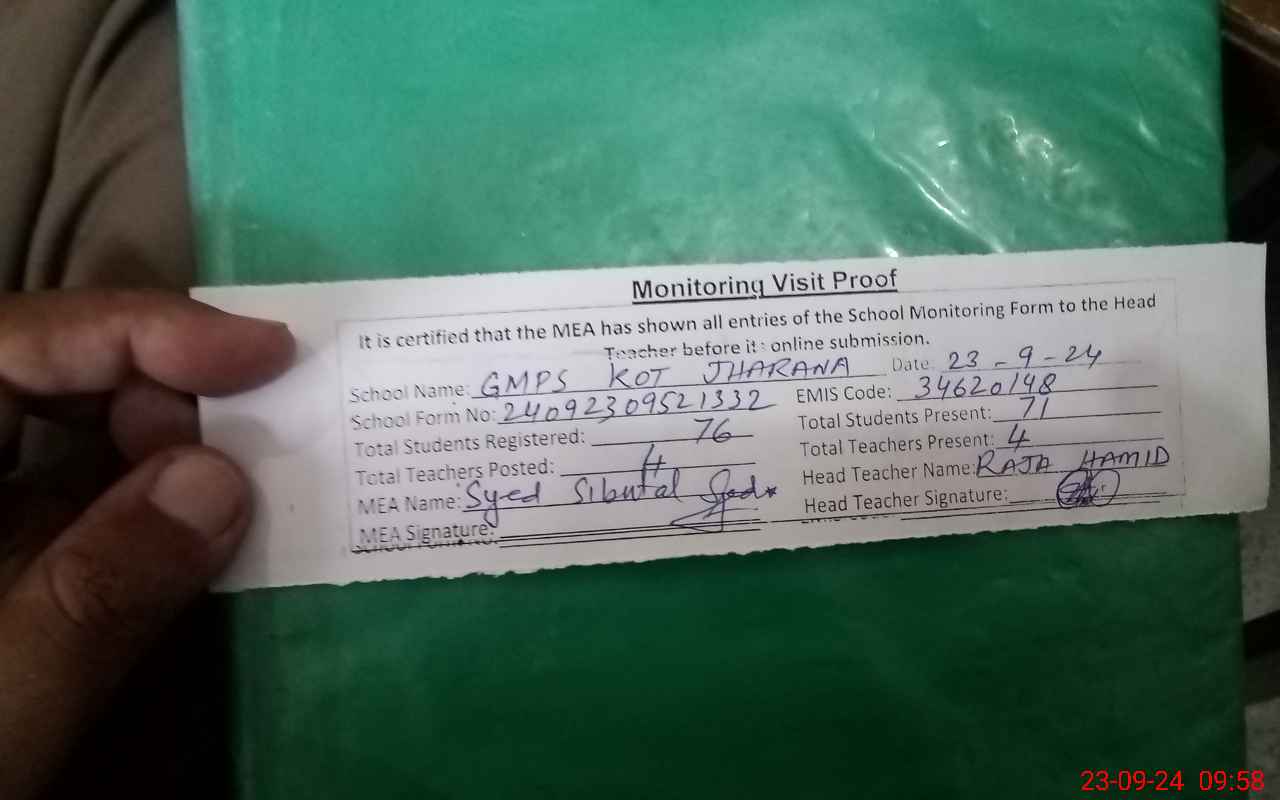 Monitoring Visit Proof
It is certified that the MEA has shown all entries of the School Monitoring Form to the Head
Teacher before it: online submission.
School Name: GMPS KOT JHARANA Date: 23-9-24
School Form No: 24092309521332 EMIS Code: 34620148
Total Students Registered: 76 Total Students Present: 71
Total Teachers Posted: 4 Total Teachers Present: 4
MEA Name: Syed Head Teacher Name: RAJA HAMID
MEA Signature: Head Teacher Signature:
23-09-24 09:58